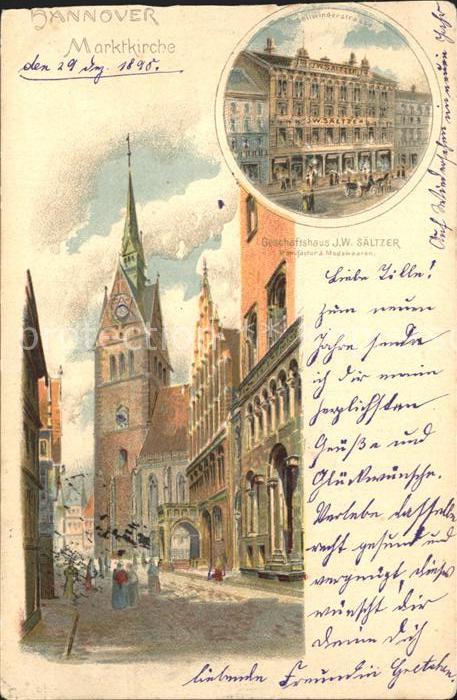 HANNOVER
Marktkirche
den 29 Dez. 1898.
Sellwinderstrasse
J.W. SÄLTZER
J.W. SÄLTZER
Geschäftshaus J.W. SÄLTZER
Manufactur & Modewaaren.
Auf Wiedersehn im neuen Jahr
Liebe Tille!
Zum neuen
Jahre sende
ich dir meine
herzlichsten
Grüße und
Glückwünsche.
Verlebe dasselbe
recht gesund und
vergnügt, dieses
wünscht dir
deine dich
liebende Freundin Gretchen.